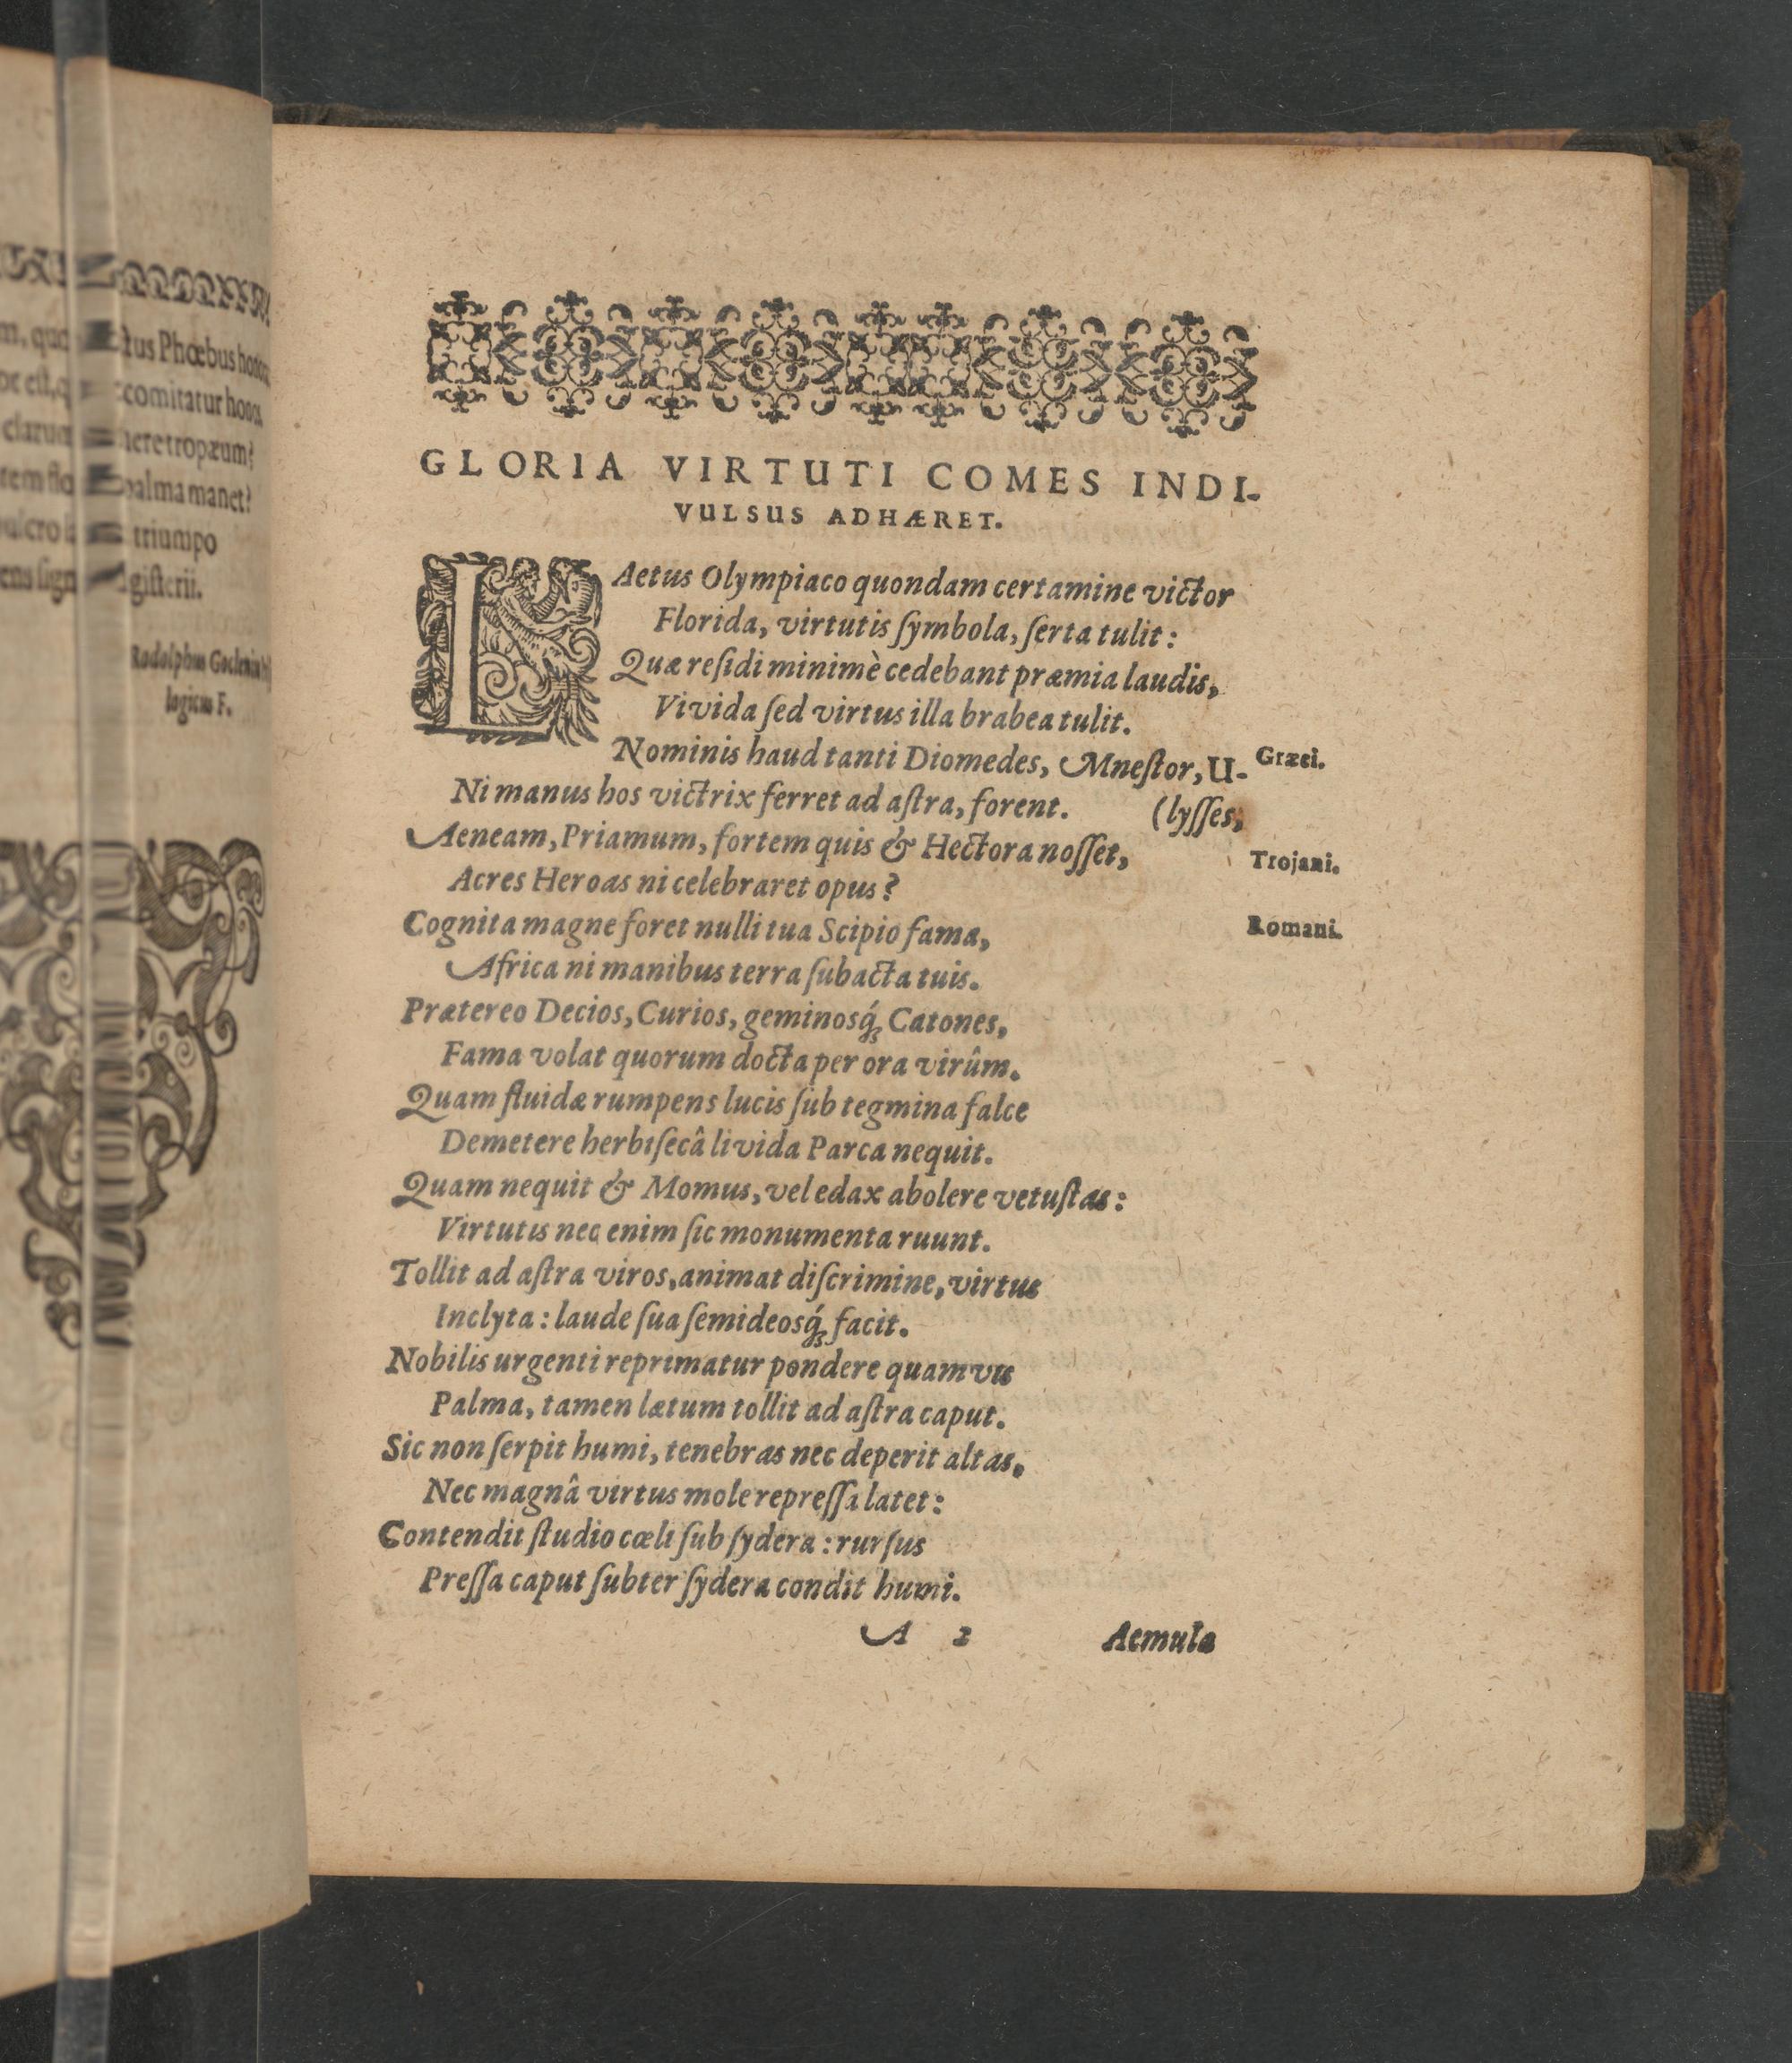 m, quo tus Phœbus honos
oc est, q comitatur honos
clarum nere tropæum?
palma manet?
triumpo
gisterii.
Rodolphus Goclenius
logicus F.
GLORIA VIRTUTI COMES INDI-
VULSUS ADHÆRET.
LAetus Olympiaco quondam certamine victor
Florida, virtutis ſymbola, ſerta tulit:
Quæ reſidi minimè cedebant præmia laudis,
Vivida ſed virtus illa brabea tulit.
Nominis haud tanti Diomedes, Mneſtor, U- Græci.
Ni manus hos victrix ferret ad aſtra, forent. (lyſſes,
Aeneam, Priamum, fortem quis & Hectora noſſet, Trojani.
Acres Heroas ni celebraret opus?
Cognita magne foret nulli tua Scipio fama, Romani.
Africa ni manibus terra ſubacta tuis.
Prætereo Decios, Curios, geminosq́ꝫ Catones,
Fama volat quorum docta per ora virûm.
Quam fluidæ rumpens lucis ſub tegmina falce
Demetere herbiſecâ livida Parca nequit.
Quam nequit & Momus, vel edax abolere vetuſtas:
Virtutis nec enim ſic monumenta ruunt.
Tollit ad aſtra viros, animat diſcrimine, virtus
Inclyta: laude ſua ſemideosq́ꝫ facit.
Nobilis urgenti reprimatur pondere quamvis
Palma, tamen lætum tollit ad aſtra caput.
Sic non ſerpit humi, tenebras nec deperit altas,
Nec magnâ virtus mole repreſſa latet:
Contendit ſtudio cœli ſub ſydera: rurſus
Preſſa caput ſubter ſydera condit humi.
A 2 Aemula